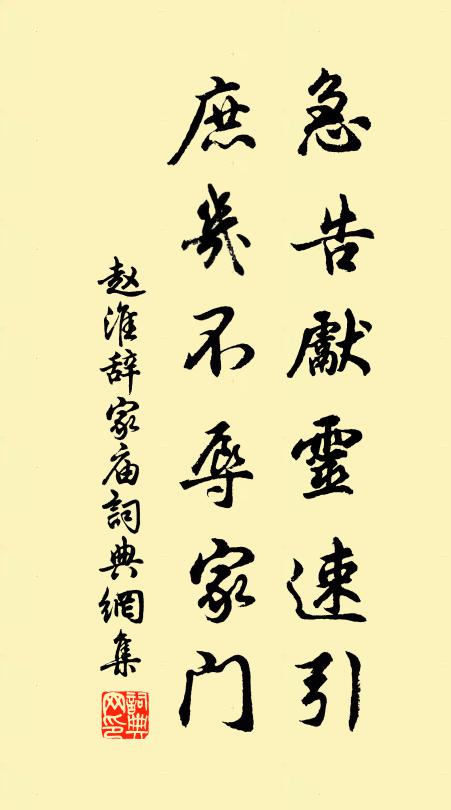 急告獻靈速引
庶幾不辱家門
赵淮辞家庙詞典網集
詞典网印